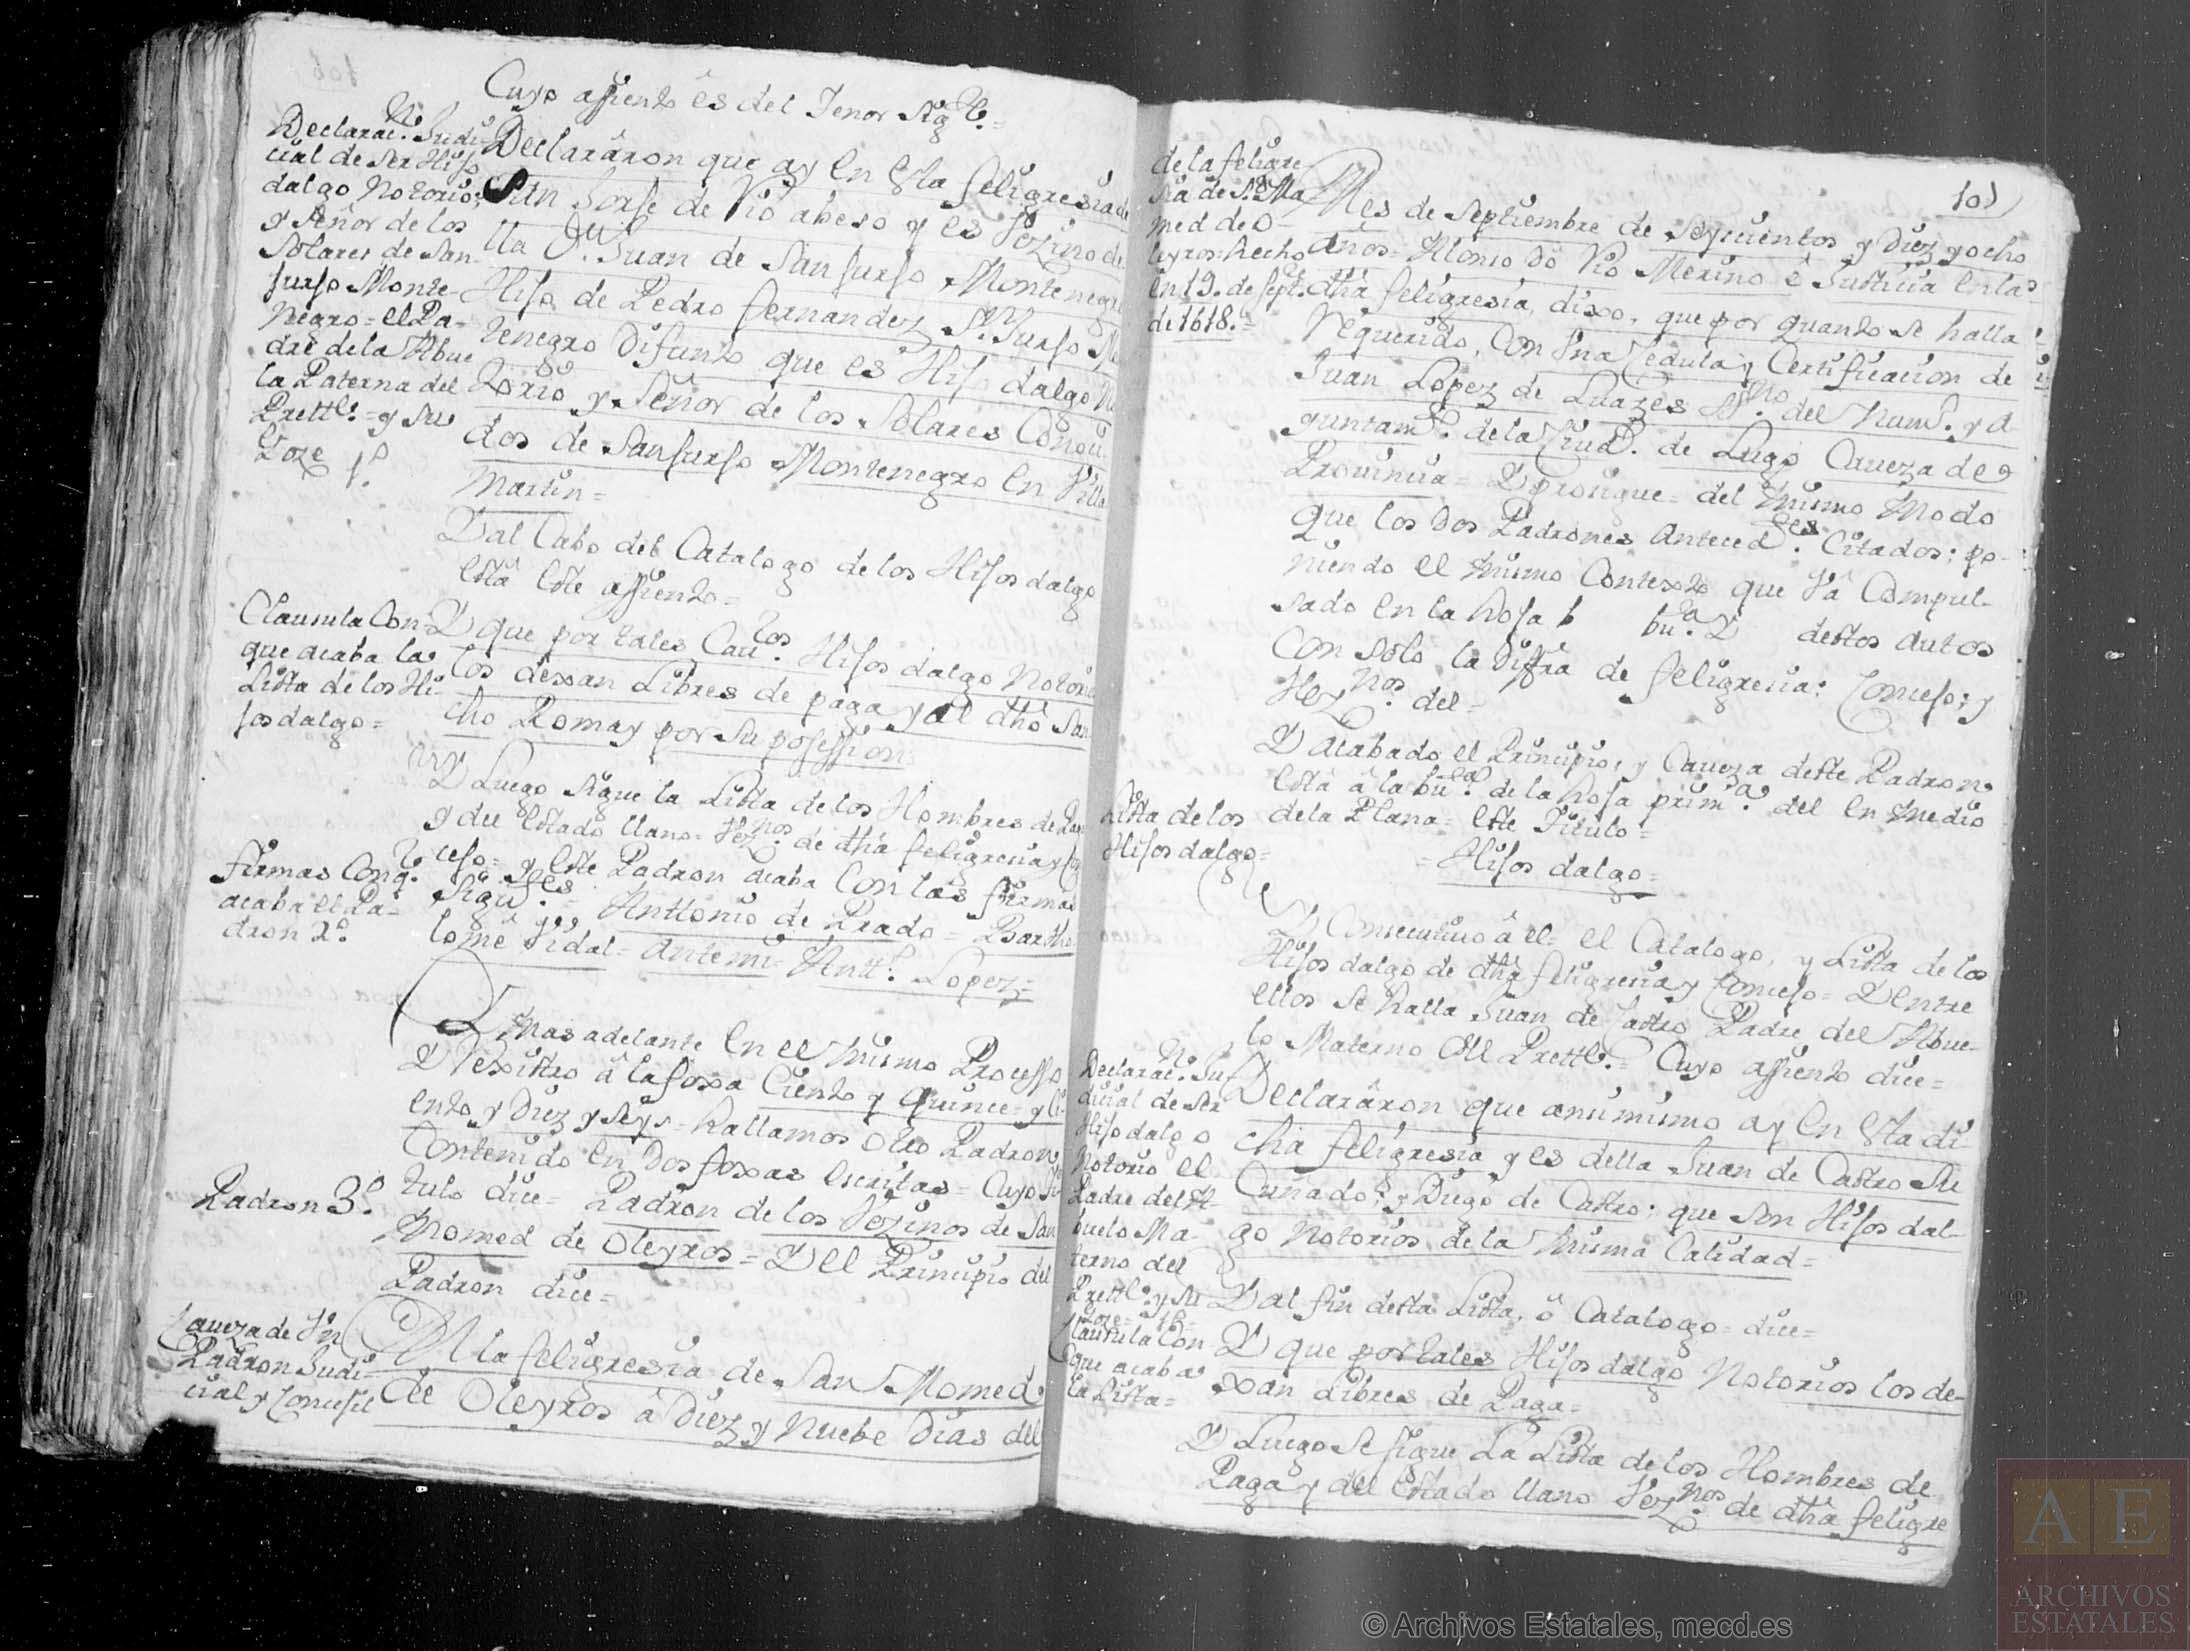 Cuyo assiento es del Tenor Sigte.=
Declaraon. Judi-
cial de ser Hijo
dalgo Notorio;
y Señor de los
Solares de San
jurjo Monte-
negro = el Pa-
dre de la Abue
la Paterna del
Prettte. = y su
Goze 1º.
Declararon que ay en esta feligresia de
San Jorje de Rio abeso y es Vezino de
lla D. Juan de Sanjurjo Montenegro
Hijo de Pedro fernandez Snjurjo Mo
tenegro Difunto que es Hijo dalgo No
torio y Señor de los Solares Conoci
dos de Sanjurjo Montenegro en Villa
Martin=
Y al Cabo del Catalogo de los Hijos dalgo
está este assiento=
Clausula Con-
que acaba la
Lista de los Hi-
jos dalgo=
Y que por tales Cau.os Hijos dalgo Notorio
los dexan Libres de paga y al dho San
cho Romay por su possession:
Y Luego sigue la Lista de los Hombres de Pa
y del estado llano= Veznos. de dha feligresia y Con
cejo= y este Padron acaba Con las firmas
Sigutes.= Anttonio de Prado= Bartho
lome Vidal= Antemi= Antto. Lopez=
firmas Conq.
acaba el Pa-
dron 2º.
Y mas adelante en el mismo Processo
y rexistro â la foxa Ciento y quince= y Ci
ento y Diez y seys= hallamos otro Padron
Contenido en Dos foxas escritas= Cuyo ti
tulo dice= Padron de los Vezinos de San
Momed de Oleyros= Y el Principio del
Padron dice=
Padron 3º.
Caveza de Un
Padron Judi-
cial y Concejil
En la feligresia de San Momed
de Oleyros â Diez y Nuebe Dias del
101
de la feligre
sia de Sn. Ma
med de O-
leyros: hecho
en 19. de Septe.
de 1618.=
Mes de Septiembre de Seycientos y Diez y ocho
años= Alonso do Rio Merino ê Justicia en la
dha feligresia, dixo, que por quanto se halla
requerido, Con Una Cedula y Certificacion de
Juan Lopez de Luazes Sno. del Numo. y A
yuntamto. de la Ciud. de Lugo Caveza de
Provincia= Y prosigue= del mismo modo
que los Dos Padrones antecedtes. Citados; po-
niendo el mismo Contexto que Vâ Compul-
sado en la hoja b bta. Y destos autos
Con solo la Diffra de feligresia: Concejo; y
Veznos. del=
Y acabado el Principio, y Caveza deste Padron
está â la bta. de la hoja prima. del en medio
de la Plana= este Titulo=
= Hijos dalgo=
Lista de los
Hijos dalgo=
Y Consecutivo â el= el Catalogo, y Lista de los
Hijos dalgo de dha feligresia y Concejo= Y entre
ellos se halla Juan de Castro Padre del Abue-
lo Materno del Prettte.= Cuyo assiento dice=
Declaraon. Ju-
dicial de ser
Hijo dalgo
Notorio el
Padre del A-
buelo Ma-
terno del
Prettte. y su
Goze=
Declararon que ansimismo ay en esta di
cha feligresia y es della Juan de Castro Su
Cuñado; y Diego de Castro; que son Hijos dal-
go Notorios de la misma Calidad=
Y al fin desta Lista, ô Catalogo= dice=
Clausula Con
que acaba
la Lista=
Y que por tales Hijos dalgo Notorios los de-
xan Libres de Paga=
Y Luego se sigue La Lista de los Hombres de
Paga y del estado llano Veznos. de dha feligre
AE
ARCHIVOS
ESTATALES
© Archivos Estatales, mecd.es